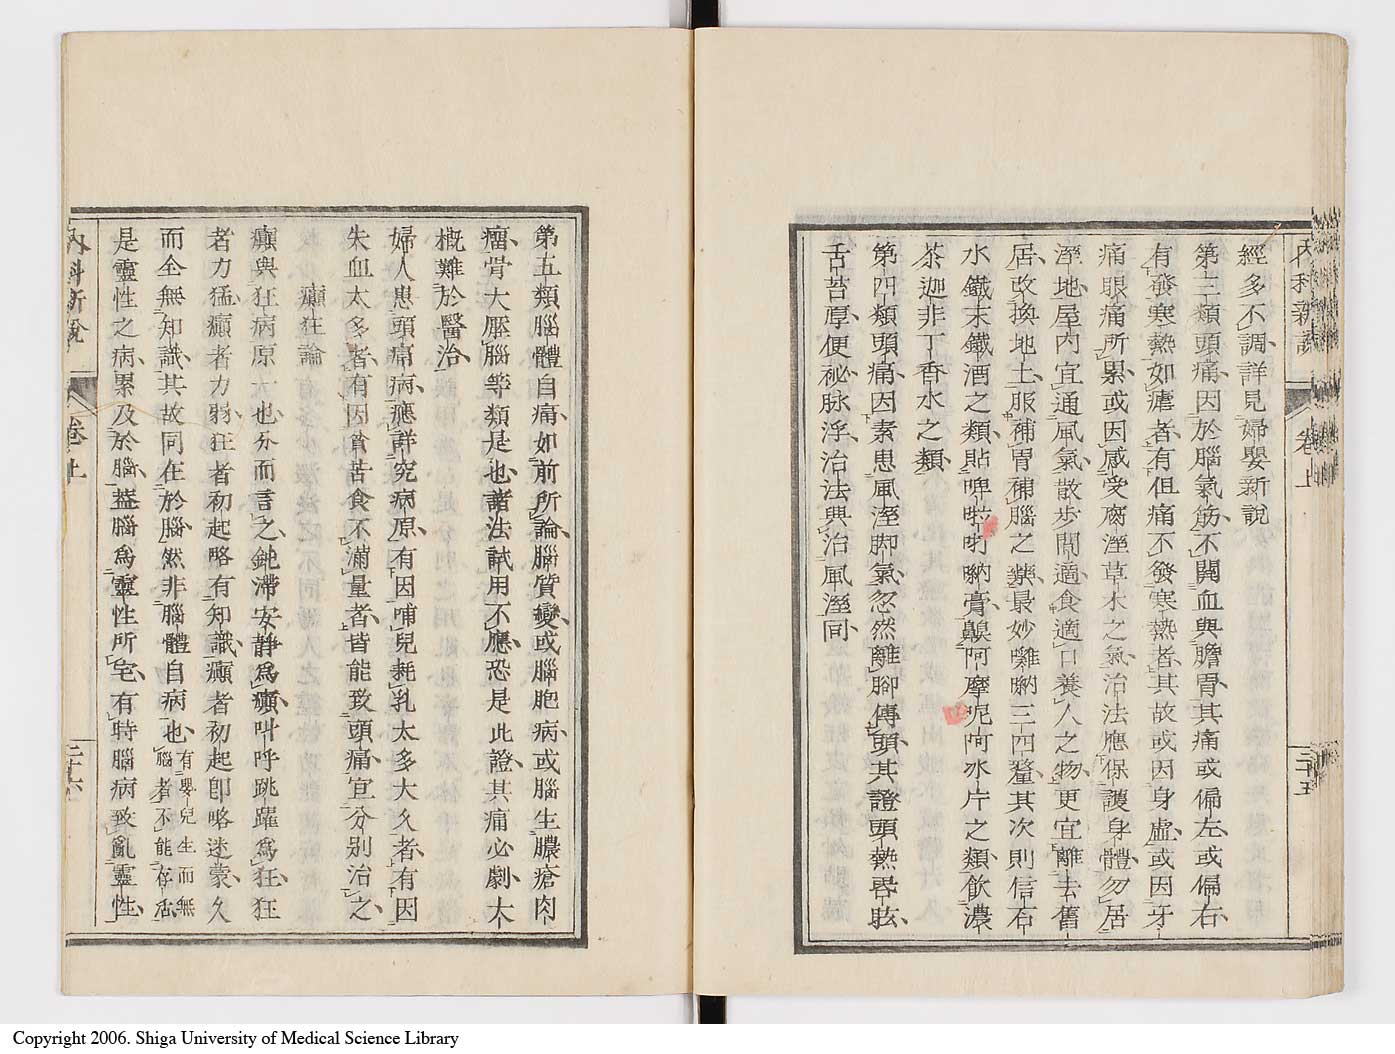 內科新說
卷上
二十五
經多不調詳見婦嬰新說
第三類頭痛因於腦氣筋不關血與膽胃其痛或偏左或偏右
有發寒熱如瘧者有但痛不發寒熱者其故或因身虛或因牙
痛眼痛所累或因感受腐溼草木之氣治法應保護身體勿居
溼地屋內宜通風氣散步閒適食適口養人之物更宜離去舊
居改換地土服補胃補腦之藥最妙囄喲三四釐其次則信石
水鐵末鐵酒之類貼啤啦叮喲膏齅阿摩呢阿水片之類飲濃
茶迦非丁香水之類
第四類頭痛因素患風溼脚氣忽然離腳傳頭其證頭熱昏眩
舌苔厚便祕脉浮治法與治風溼同
第五類腦體自痛如前所論腦質變或腦胞病或腦生膿瘡肉
瘤骨大壓腦等類是也諸法試用不應恐是此證其痛必劇大
槪難於醫治
婦人患頭痛病應詳究病原有因哺兒耗乳太多大久者有因
失血太多者有因貧苦食不滿量者皆能致頭痛宜分別治之
癲狂論
癲與狂病原一也分而言之鈍滯安靜爲癲叫呼跳躍爲狂狂
者力猛癲者力弱狂者初起略有知識癲者初起卽略迷蒙久
而全無知識其故同在於腦然非腦體自病也有嬰兒生而無腦者不能存活
是靈性之病累及於腦葢腦爲靈性所宅有時腦病致亂靈性
內科新說
卷上
二十六
Copyright 2006. Shiga University of Medical Science Library